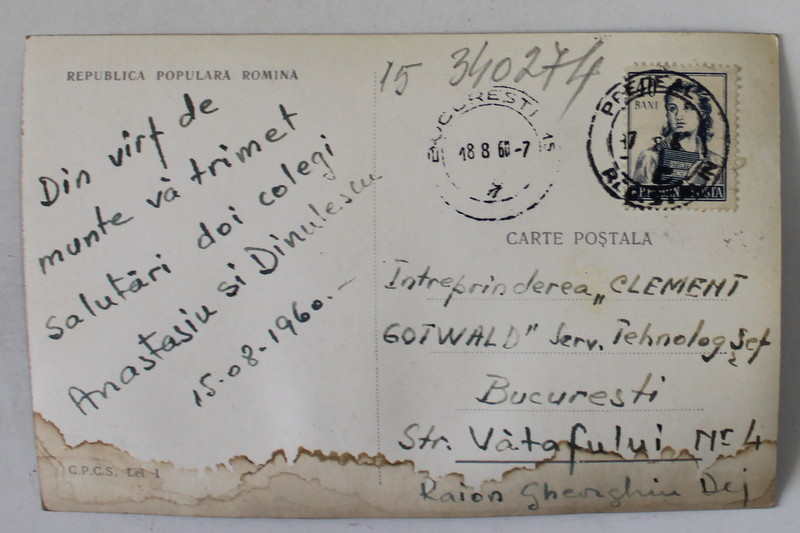 REPUBLICA POPULARĂ ROMÎNĂ
Din vîrf de
munte vă trimet
salutări doi colegi
Anastasiu si Dinulescu
15-08-1960.-
C.P.C.S. Lei 1
15 340274
BUCURESTI 15
18 8 60-7
40
BANI
POSTA
PREDEAL
CARTE POȘTALĂ
Intreprinderea „CLEMENT
GOTWALD" Serv. Tehnolog Șef
Bucuresti
Str. Vătafului Nr 4
Raion Gheorghiu Dej